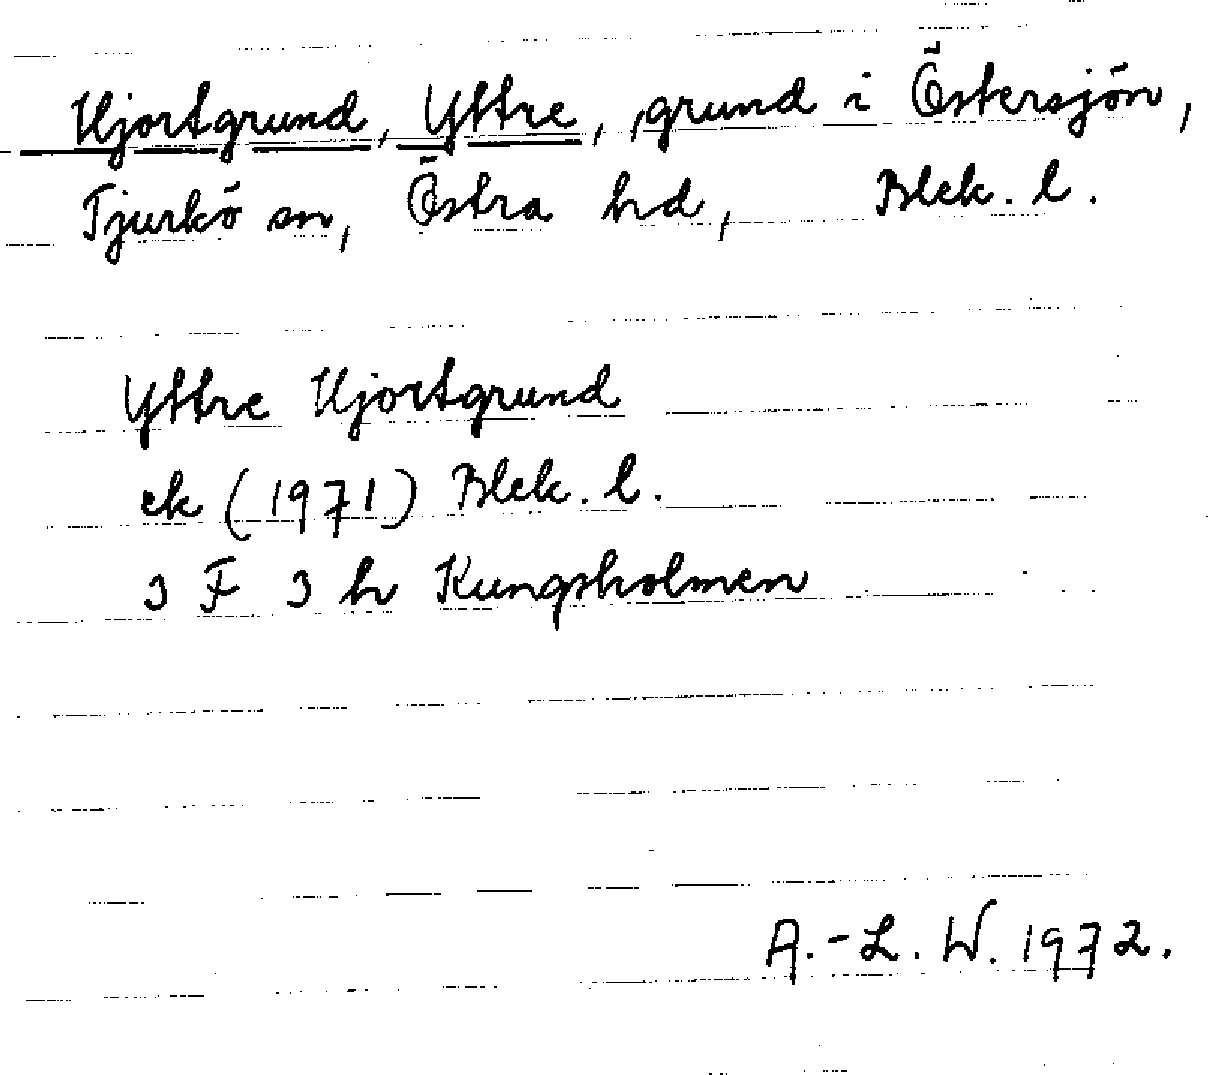 Hjortgrund, Yttre, grund i Östersjön,
Tjurkö sn, Östra hd, Blek. l.
Yttre Hjortgrund
ek (1971) Blek. l.
3 F 3 h Kungsholmen
A.-L. W. 1972.